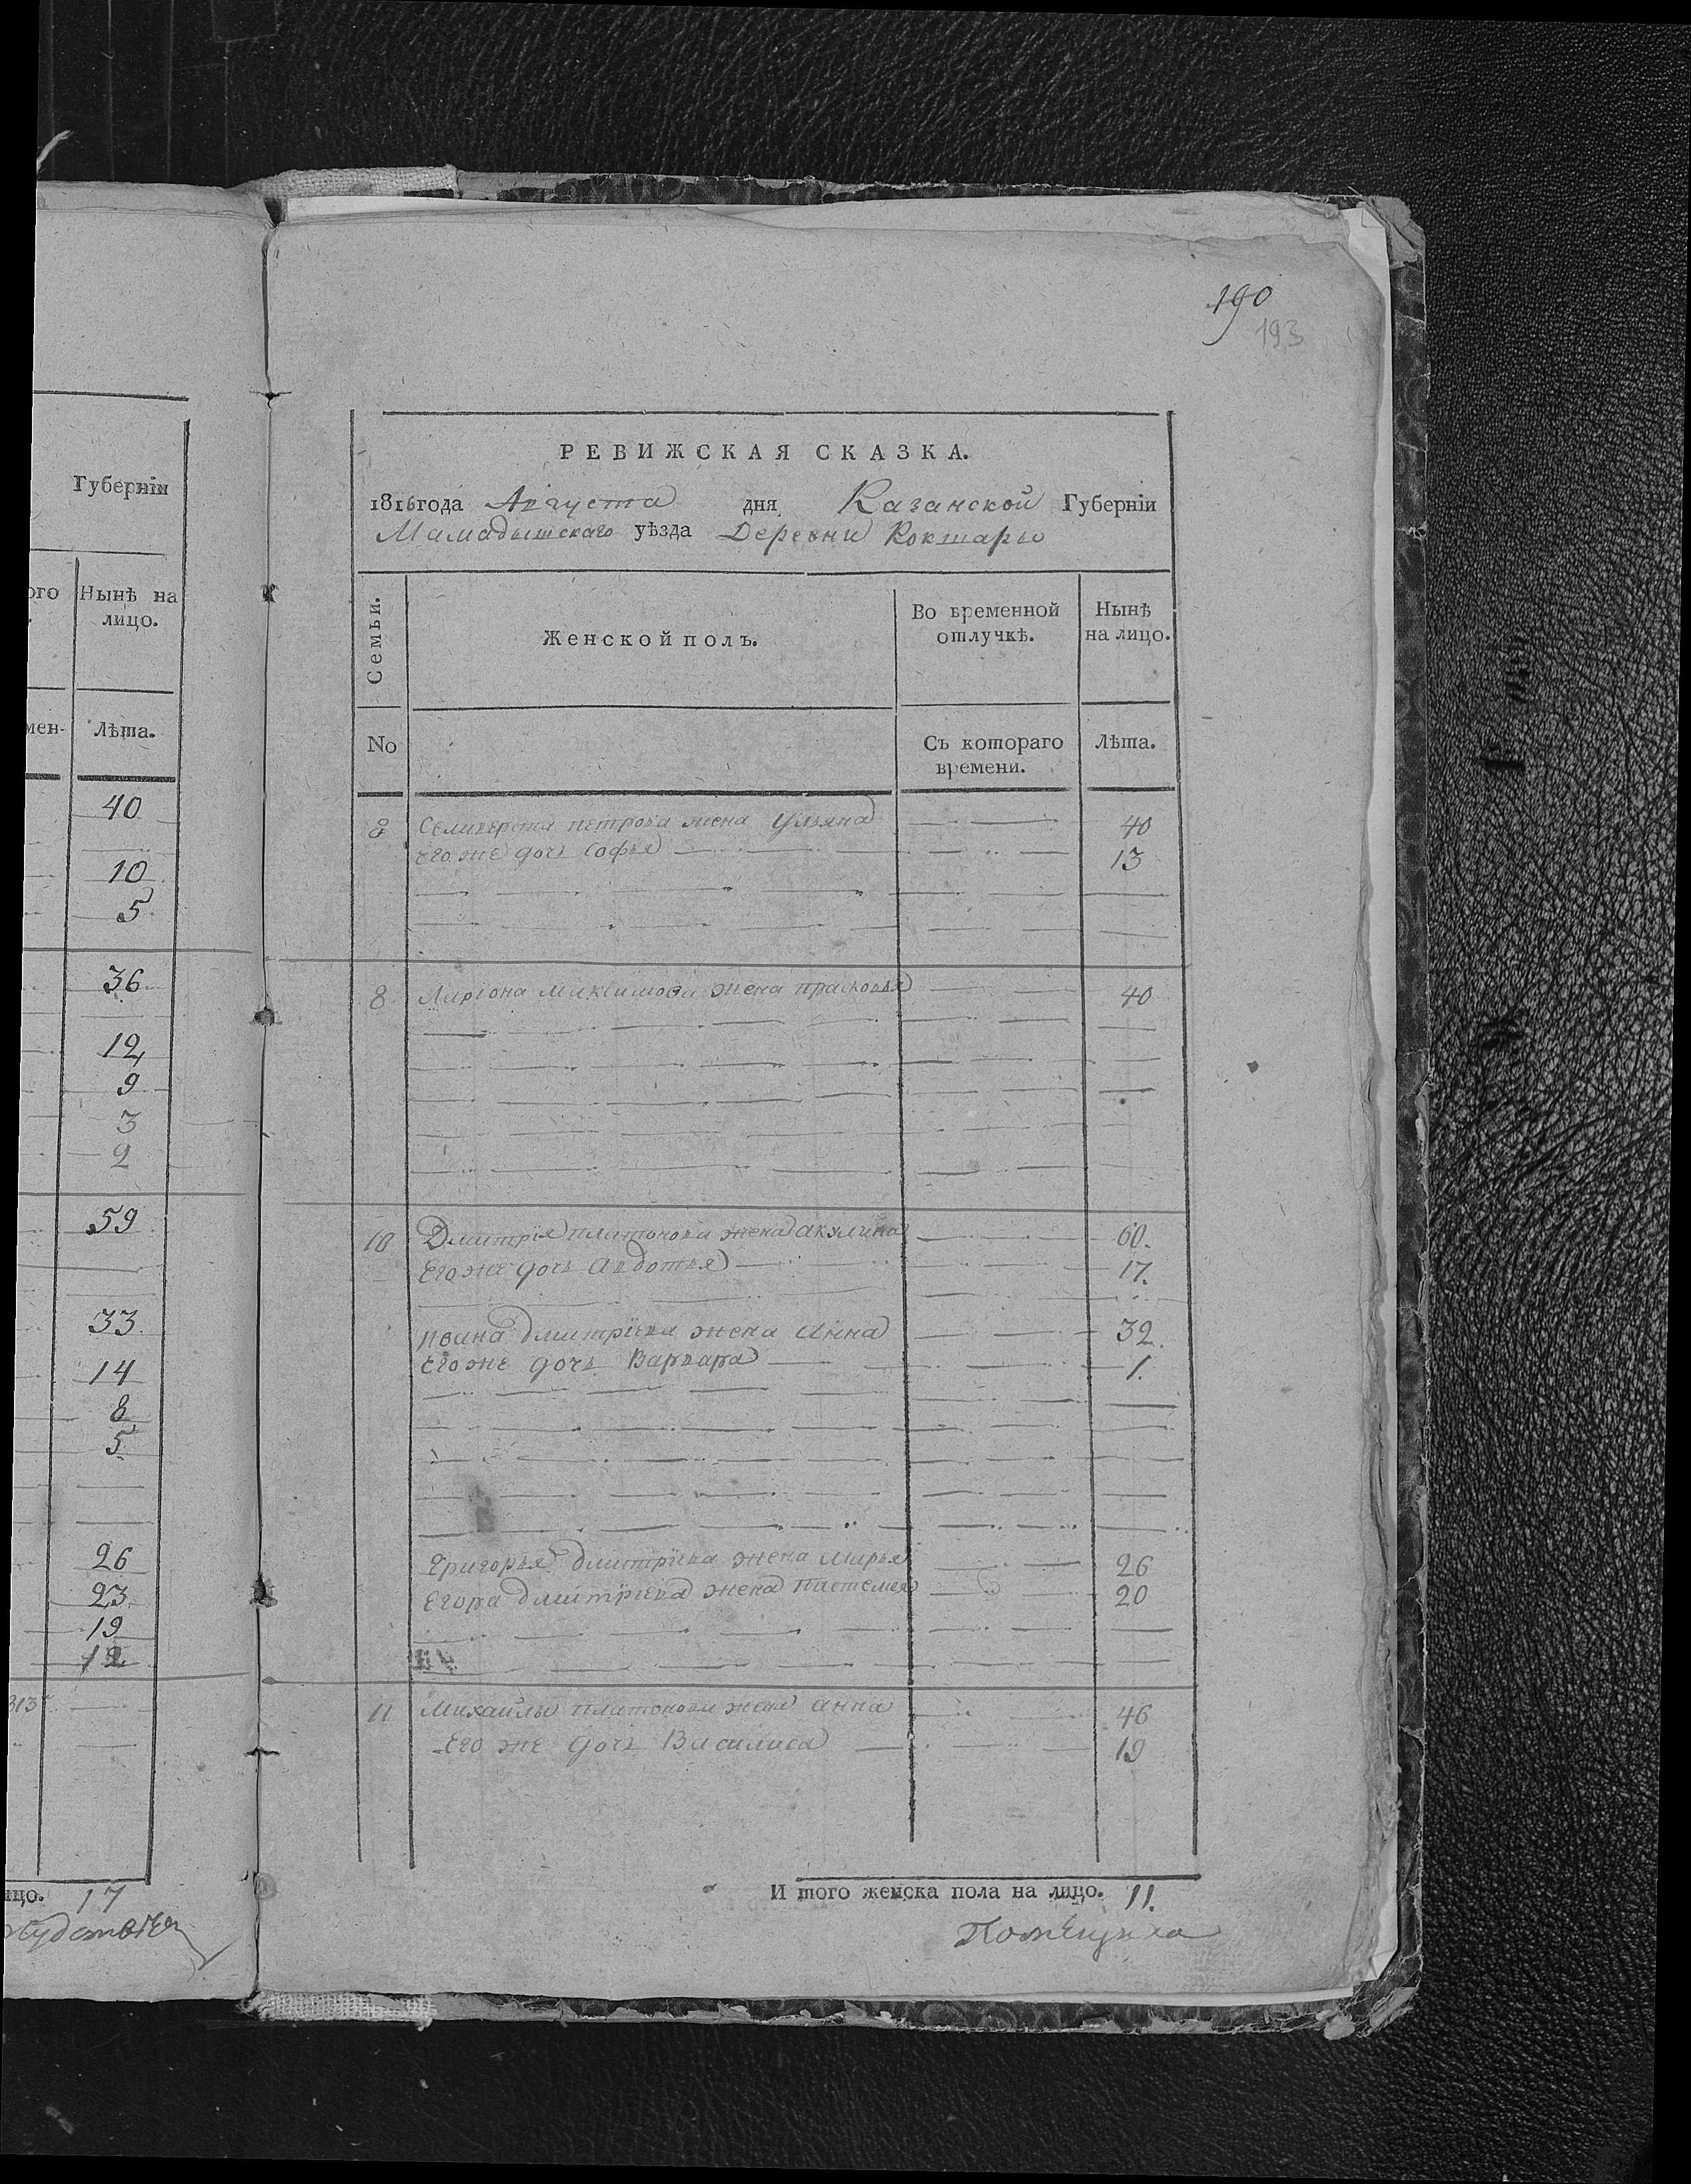 Губерніи
ого
Нынѣ на
лицо.
мен-
Лѣта.
40
10
5
36
12
9
3
2
59
33
14
8
5
26
23
19
12
813
ицо. 17
190
193
РЕВИЖСКАЯ СКАЗКА.
1816 года Августа дня Казанской Губерніи
Мамадышскаго уѣзда Деревни Кокшары
Семьи.
Женской полъ.
Во временной
отлучкѣ.
Нынѣ
на лицо.
No
Съ котораго
времени.
Лѣта.
8 Селиверста петрова жена Ульяна 40
Его же дочь Софья 13
8 Лариона Максимова жена прасковья 40
10 Дмитрія платонова жена акулина 60.
Его же дочь Авдотья 17.
Ивана дмитріева жена Анна 32.
Его же дочь Варвара 1.
Григорья дмитріева жена марья 26
Егора дмитріева жена 20
11 Михайлы платонова жена анна 46
Его же дочь Василиса 19
И того женска пола на лицо. 11.
Помѣщика